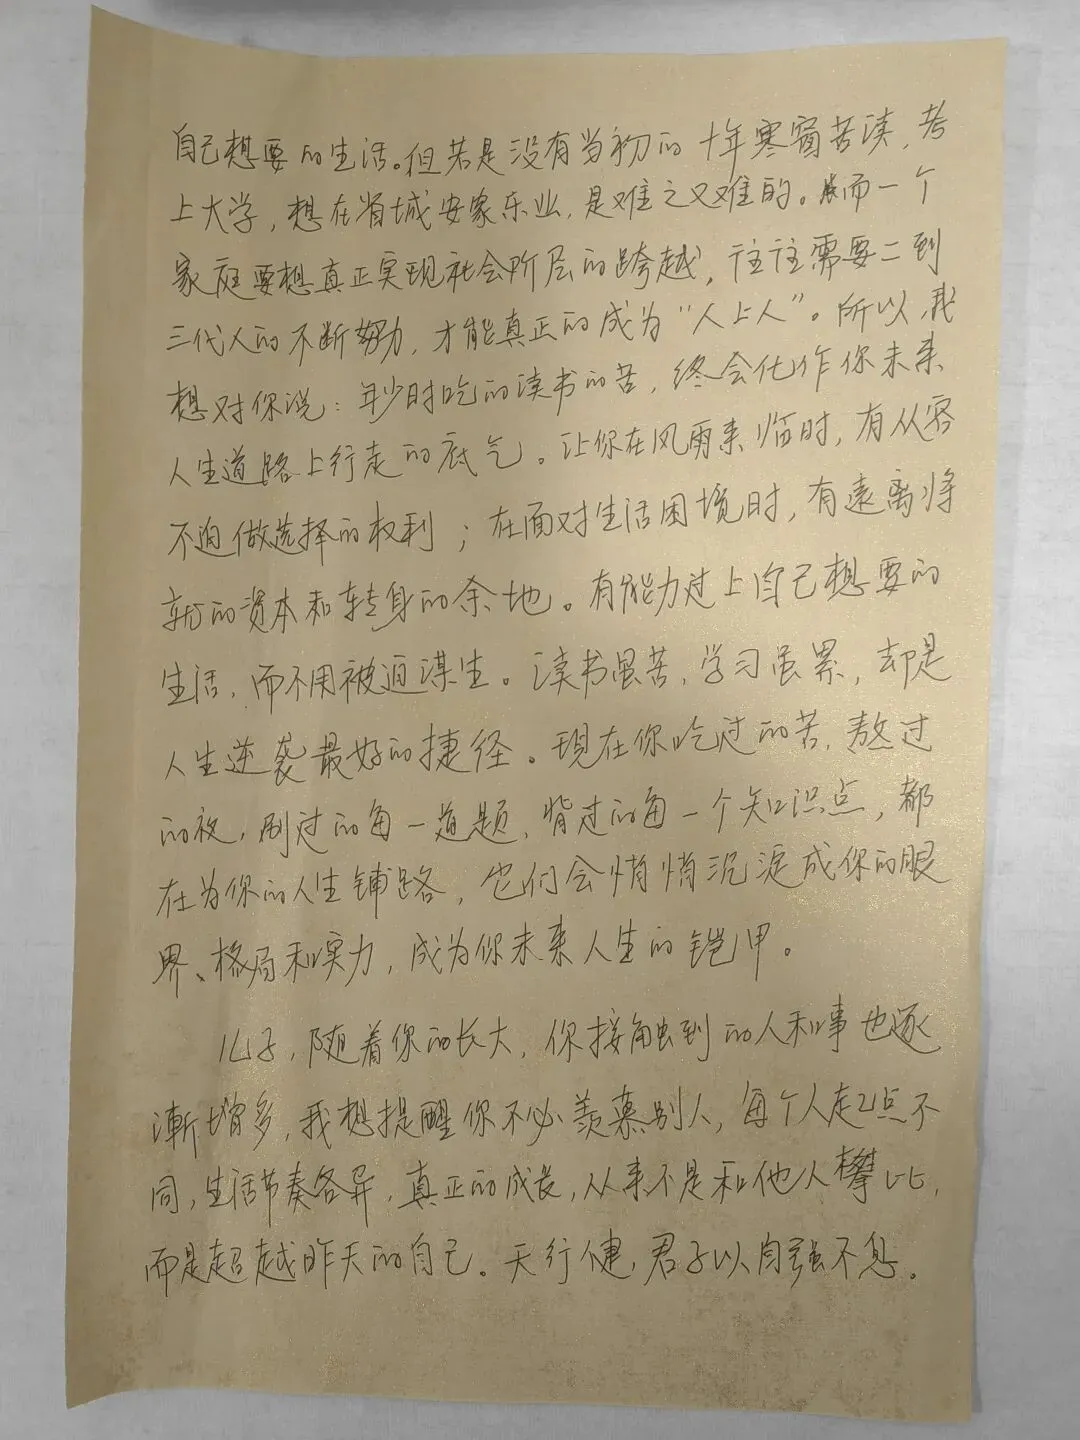 自己想要的生活。但若是没有当初的十年寒窗苦读，考
上大学，想在省城安家乐业，是难之又难的。然而一个
家庭要想真正实现社会阶层的跨越，往往需要二到
三代人的不断努力，才能真正的成为“人上人”。所以，我
想对你说：年少时吃的读书的苦，终会化作你未来
人生道路上行走的底气。让你在风雨来临时，有从容
不迫做选择的权利；在面对生活困境时，有远离将
就的资本和转身的余地。有能力过上自己想要的
生活，而不用被迫谋生。读书虽苦，学习虽累，却是
人生逆袭最好的捷径。现在你吃过的苦，熬过
的夜，刷过的每一道题，背过的每一个知识点，都
在为你的人生铺路，它们会悄悄沉淀成你的眼
界、格局和实力，成为你未来人生的铠甲。
儿子，随着你的长大，你接触到的人和事也逐
渐增多，我想提醒你不必羡慕别人，每个人起点不
同，生活节奏各异，真正的成长，从来不是和他人攀比，
而是超越昨天的自己。天行健，君子以自强不息。